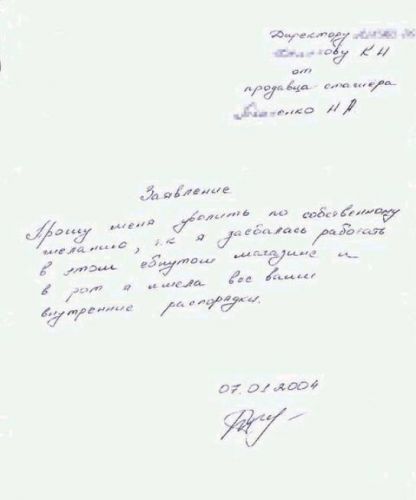 Директору
ову К Н
от
продавца стажера
енко Н А
Заявление
Прошу меня уволить по собственному
желанию, т.к я заебалась работать
в этом ебнутом магазине и
в рот я имела все ваши
внутренние распорядки.
07.01.2004